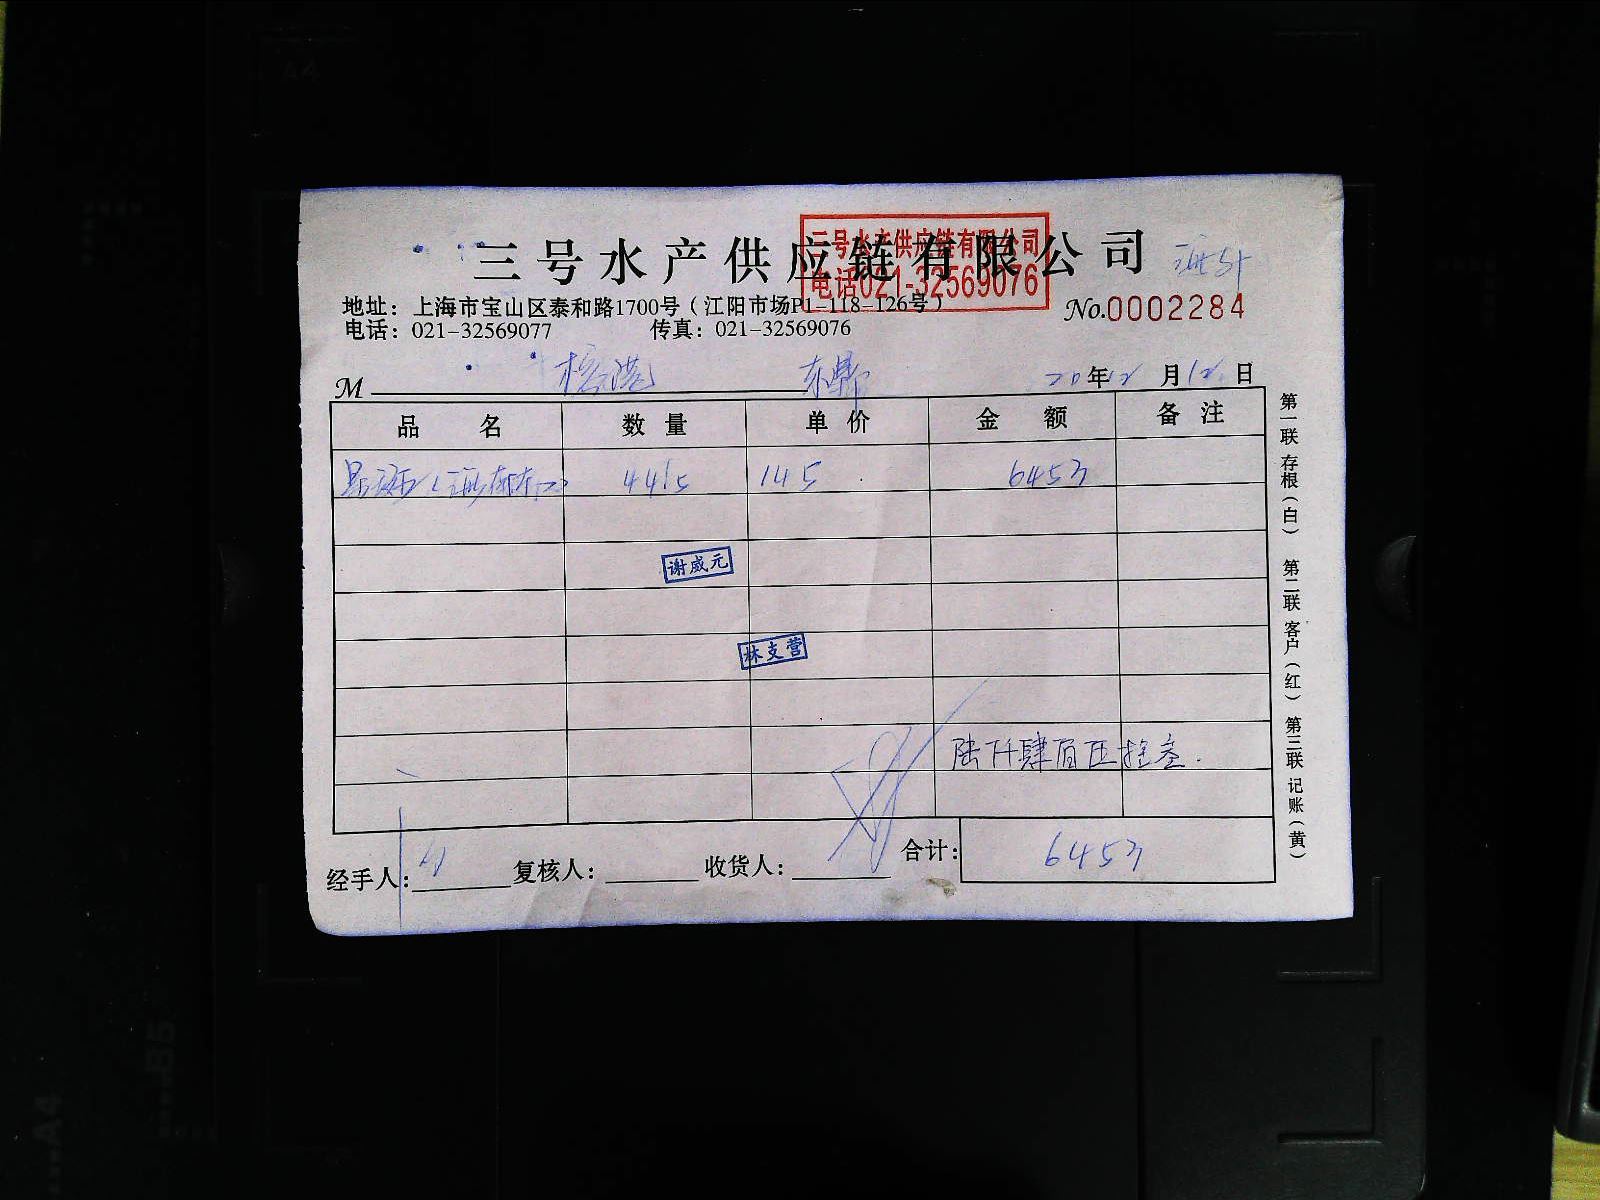 三号水产供应链有限公司
三号水产供应链有限公司
电话021-32569076
地址：上海市宝山区泰和路1700号（江阳市场P1-118-126号）
No.0002284
电话：021-32569077 传真：021-32569076
M 东鼎 20年12月12日
品名 数量 单价 金额 备注
44.5 145 6453
谢威元
林支营
陆仟肆佰伍拾叁.
经手人： 复核人： 收货人： 合计： 6453
第一联 存根（白） 第二联 客户（红） 第三联 记账（黄）
A4
B5
A4